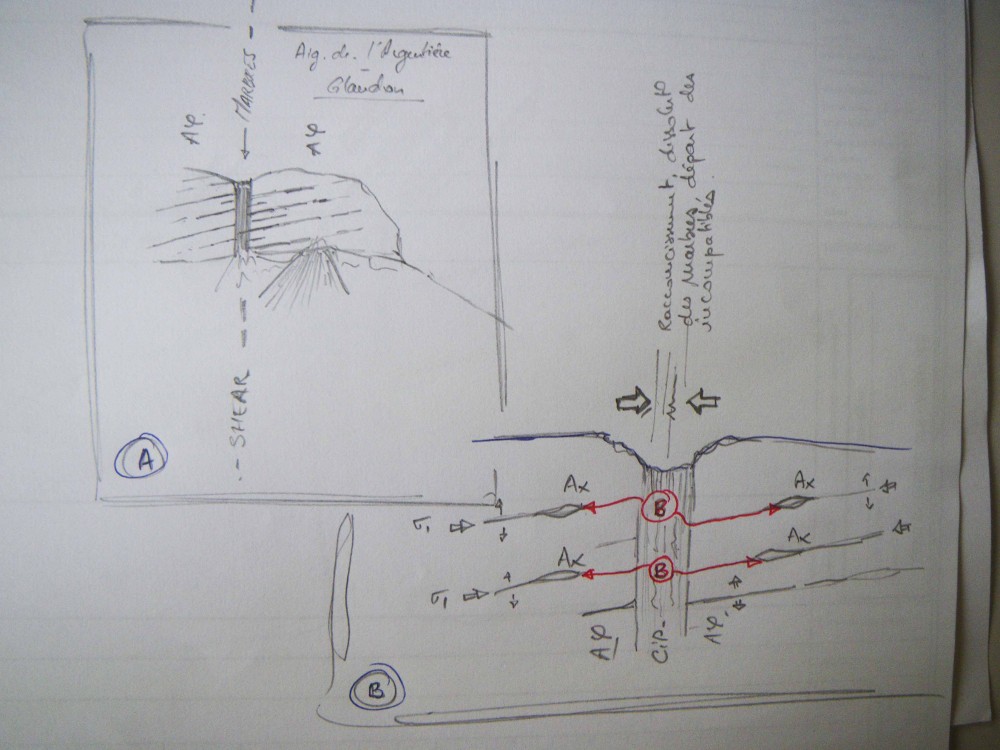 Aig. de l'Argentière
-
Glandon
MARBRES
Aφ.
Aφ
SHEAR
A
Raccourcissement, dissolut°
des marbres, départ des
incompatibles.
Ax
B
Ax
σ1
Ax
B
Ax
σ1
Aφ
CiP-
Aφ.
B